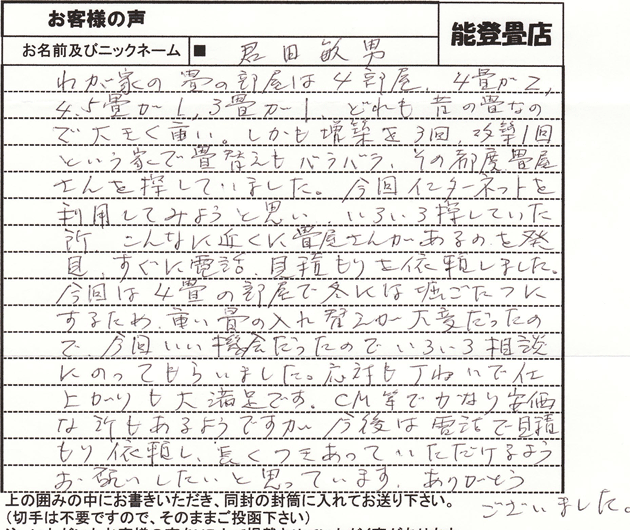 お客様の声
能登畳店
お名前及びニックネーム ■ 君田敏男
わが家の畳の部屋は4部屋、4畳が2,
4.5畳が1,3畳が1 どれも昔の畳なの
で大きく重い。しかも増築を3回,改築1回
という家で畳替えもバラバラ、その都度畳屋
さんを探していました。今回インターネットを
利用してみようと思い いろいろ探していた
所 こんなに近くに畳屋さんがあるのを発
見、すぐに電話、見積もりを依頼しました。
今回は4畳の部屋で冬には堀ごたつに
するため、重い畳の入れ替えが大変だったの
で 今回いい機会だったのでいろいろ相談
にのってもらいました。応対も丁ねいで仕
上がりも大満足です。CM等でかなり安価
な所もあるようですが 今後は電話で見積
もり依頼し、長くつきあっていただけるよう
お願いしたいと思っています ありがとう
ございました。
上の囲みの中にお書きいただき、同封の封筒に入れてお送り下さい。
(切手は不要ですので、そのままご投函下さい)